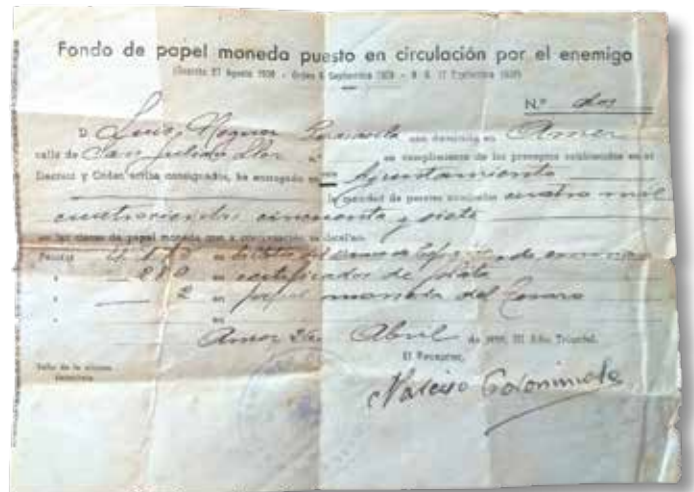 Fondo de papel moneda puesto en circulación por el enemigo
(Decreto 27 Agosto 1938 - Orden Septiembre 1938 - B. O. 17 Septiembre 1938)
N.º dos
D. Luis Noguer con domicilio en Amer
calle de San Julián Llor n.º en cumplimiento de los preceptos establecidos en el
Decreto y Orden arriba consignados, ha entregado en este Ayuntamiento
la cantidad de pesetas cuatro mil
cuatrocientas cincuenta y siete
en las clases de papel moneda que a continuación se detallan.
Pesetas en billetes del Banco de España
" 280 en certificados de plata
" 2 en papel moneda del Tesoro
" en
Amer Abril de 1939, III Año Triunfal.
El Receptor,
Sello de la oficina
receptora
Narciso